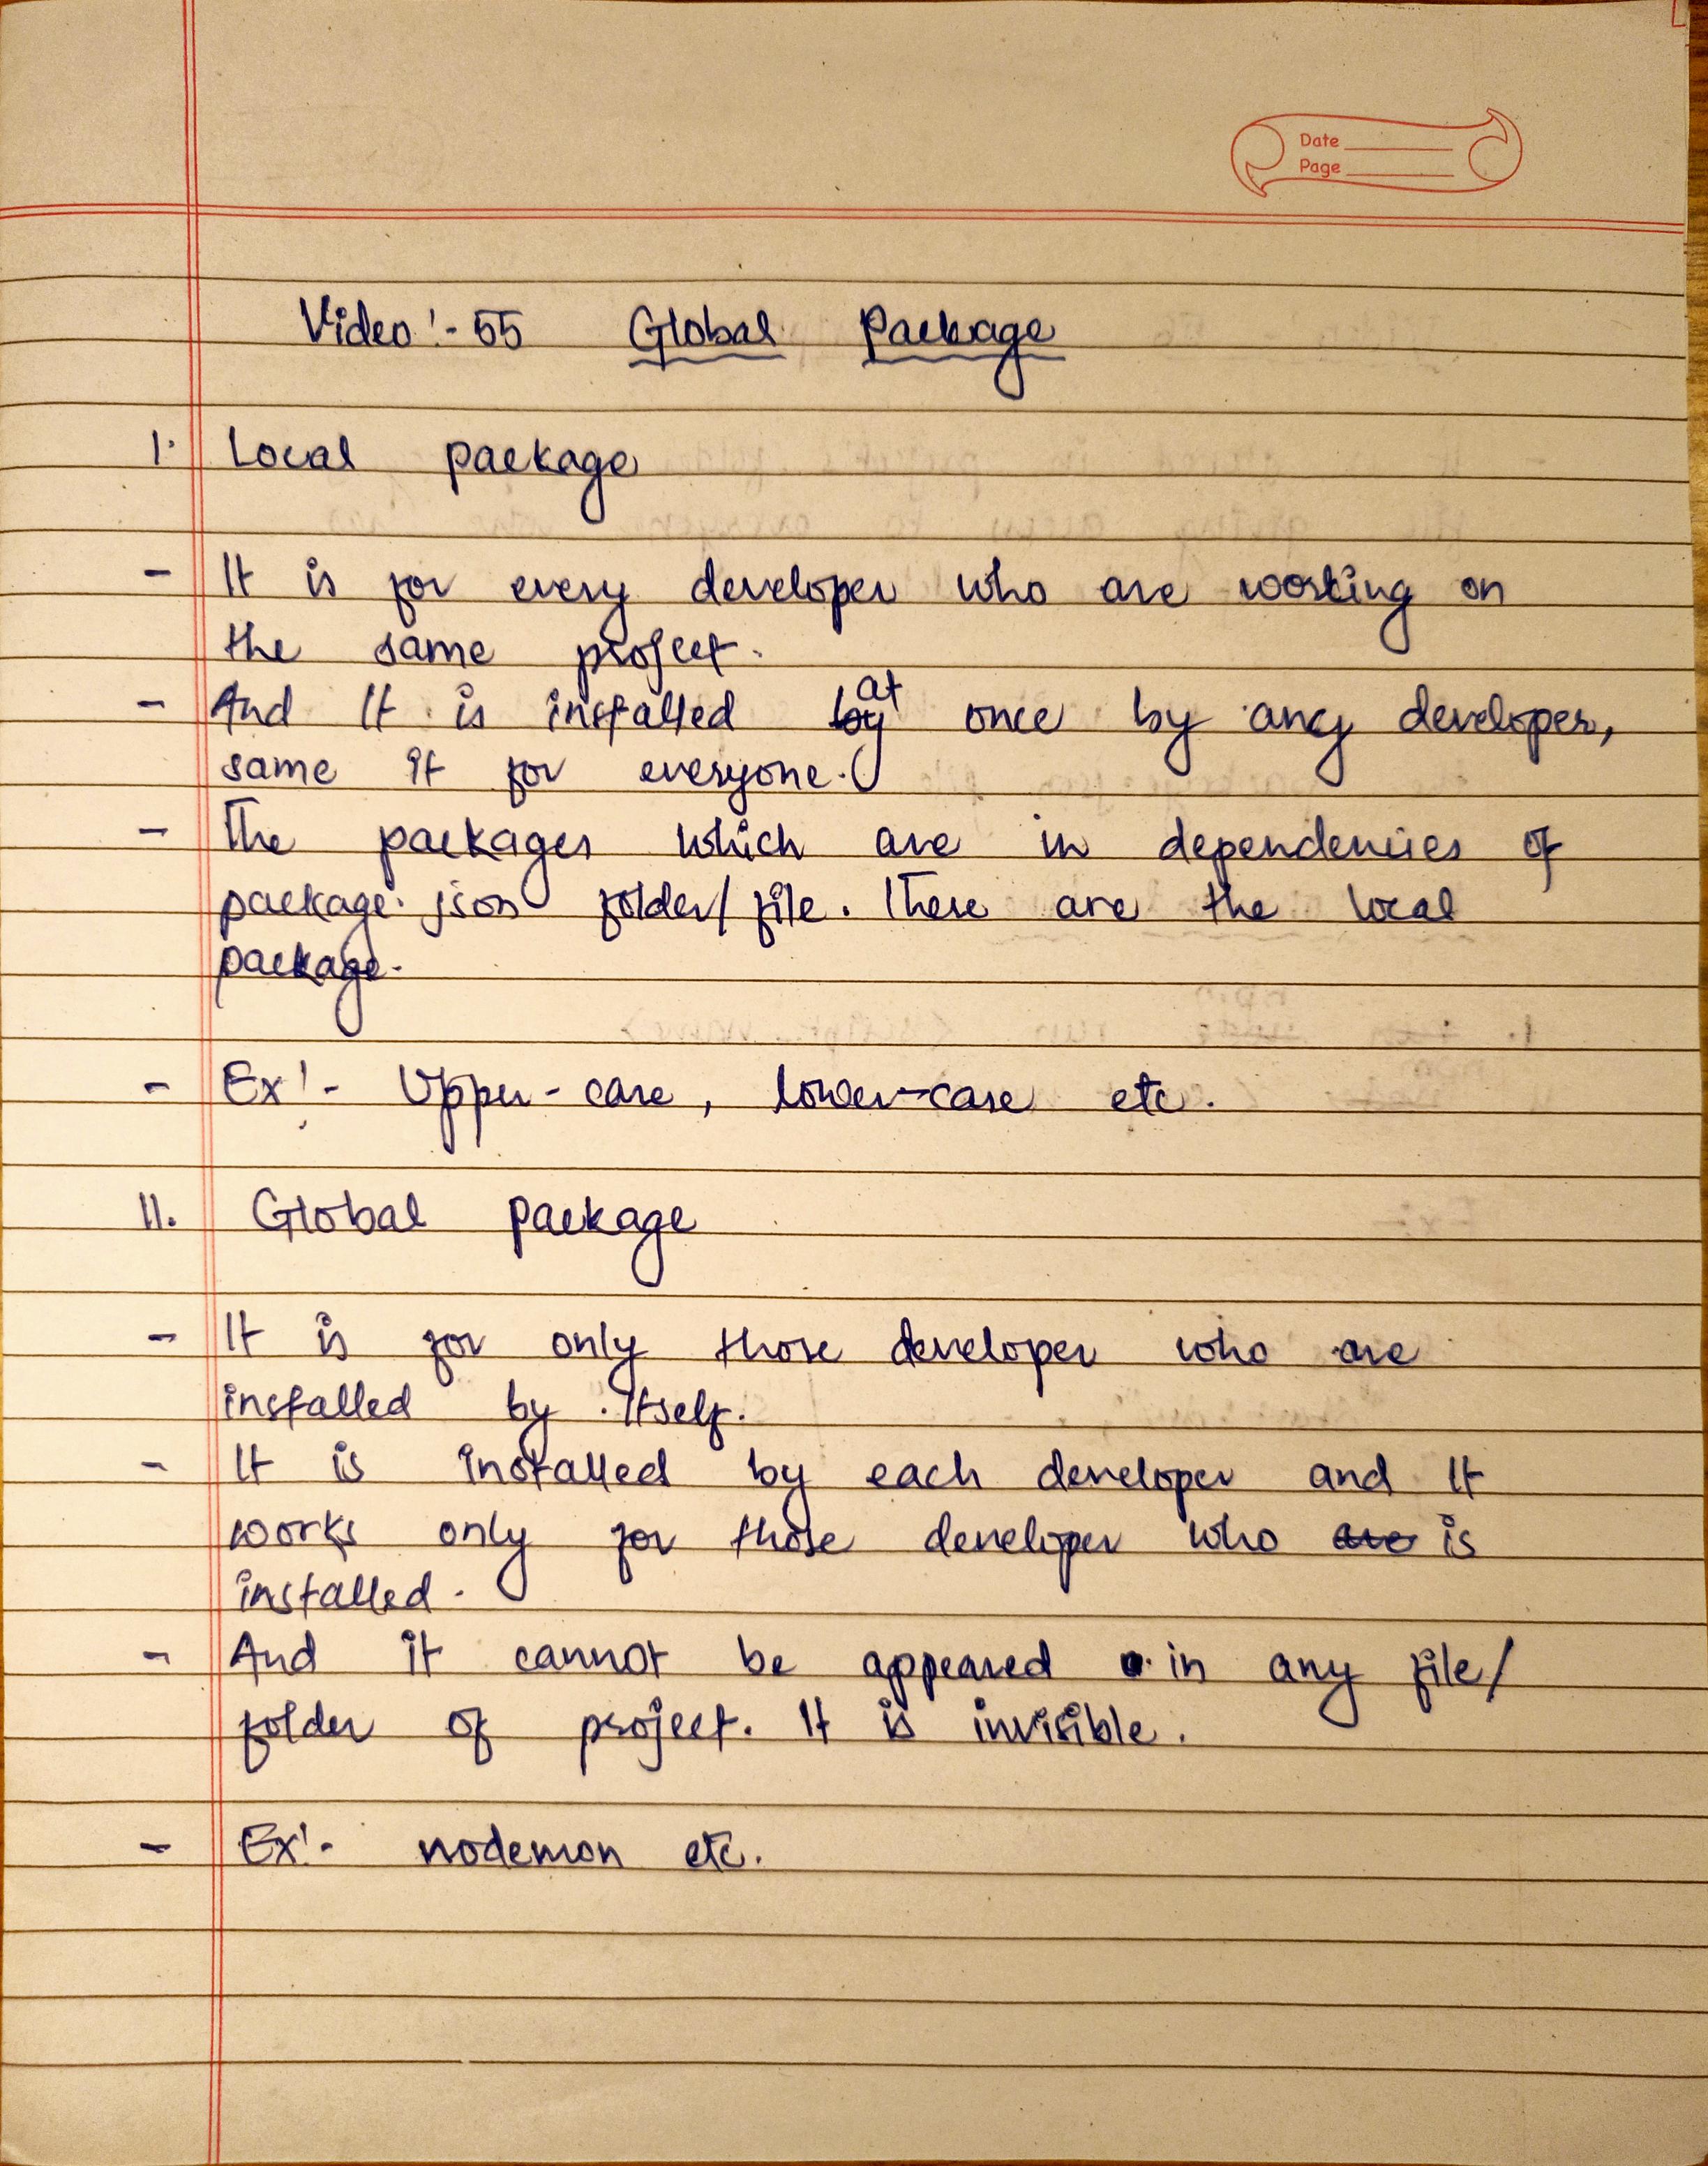 Date
Page
Video:- 55 Global Package
I. Local package
- It is for every developer who are working on
the same project.
- And It is installed at once by any developer,
same it for everyone.
- The packages which are in dependencies of
package.json folder/file. These are the local
package.
- Ex:- Upper-case, lower-case etc.
II. Global package
- It is for only those developer who are
installed by itself.
- It is installed by each developer and It
works only for those developer who is
installed.
- And it cannot be appeared in any file/
folder of project. It is invisible.
- Ex:- nodemon etc.